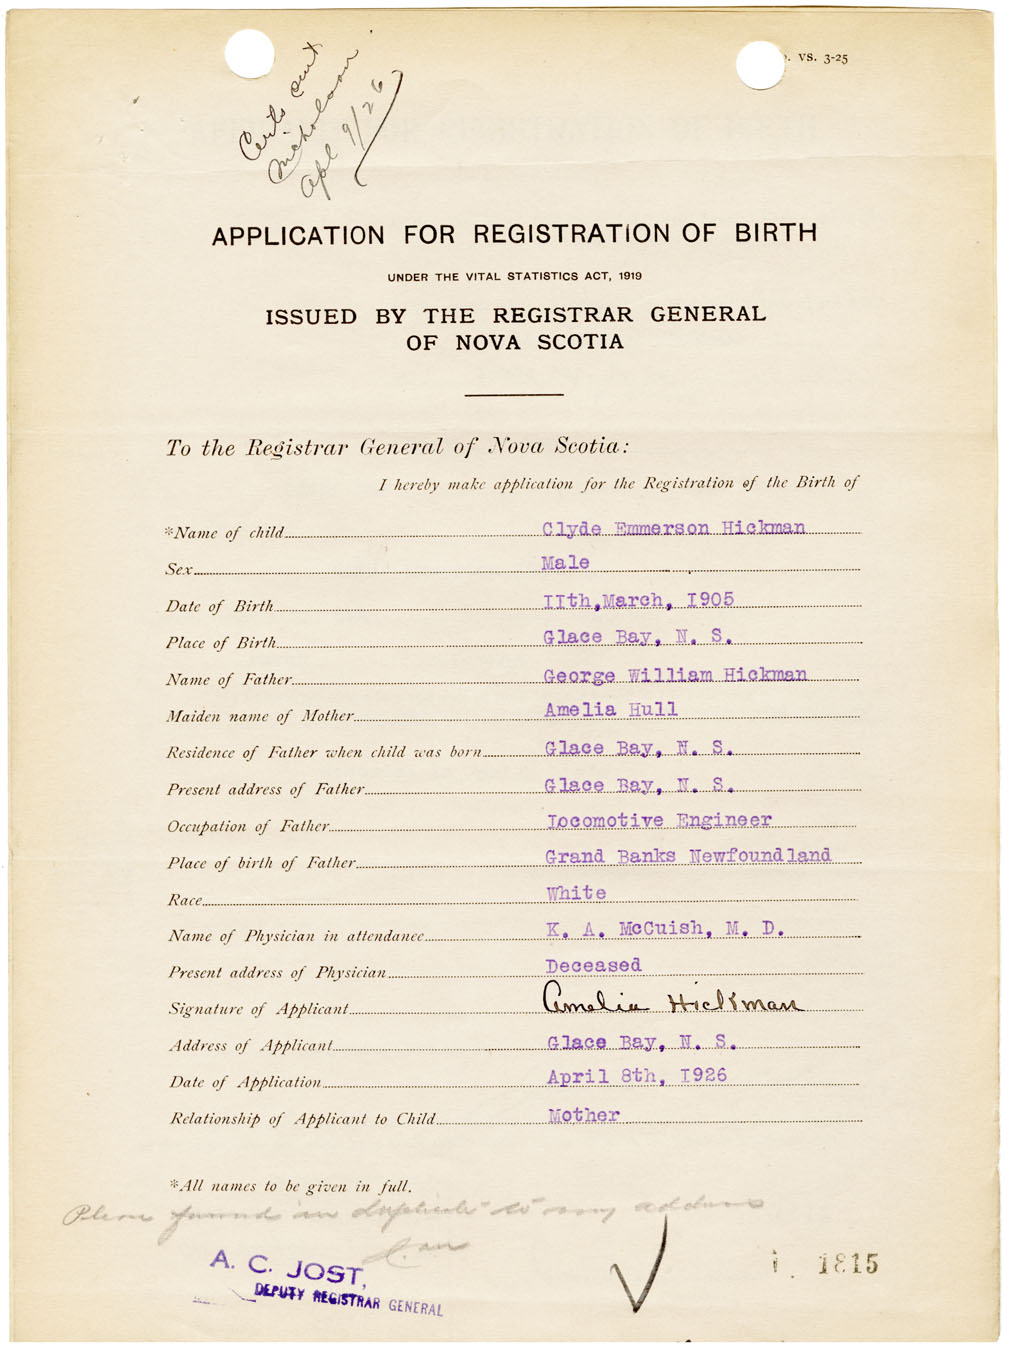 Certs sent
Nicholson
Apl 9/26
. VS. 3-25
APPLICATION FOR REGISTRATION OF BIRTH
UNDER THE VITAL STATISTICS ACT, 1919
ISSUED BY THE REGISTRAR GENERAL
OF NOVA SCOTIA
To the Registrar General of Nova Scotia:
I hereby make application for the Registration of the Birth of
*Name of child Clyde Emmerson Hickman
Sex Male
Date of Birth IIth,March, I905
Place of Birth Glace Bay, N. S.
Name of Father George William Hickman
Maiden name of Mother Amelia Hull
Residence of Father when child was born Glace Bay, N. S.
Present address of Father Glace Bay, N. S.
Occupation of Father Locomotive Engineer
Place of birth of Father Grand Banks Newfoundland
Race White
Name of Physician in attendance K. A. McCuish, M. D.
Present address of Physician Deceased
Signature of Applicant Amelia Hickman
Address of Applicant Glace Bay, N. S.
Date of Application April 8th, I926
Relationship of Applicant to Child Mother
*All names to be given in full.
Please forward in duplicate to my address
A. C. JOST,
DEPUTY REGISTRAR GENERAL
1815